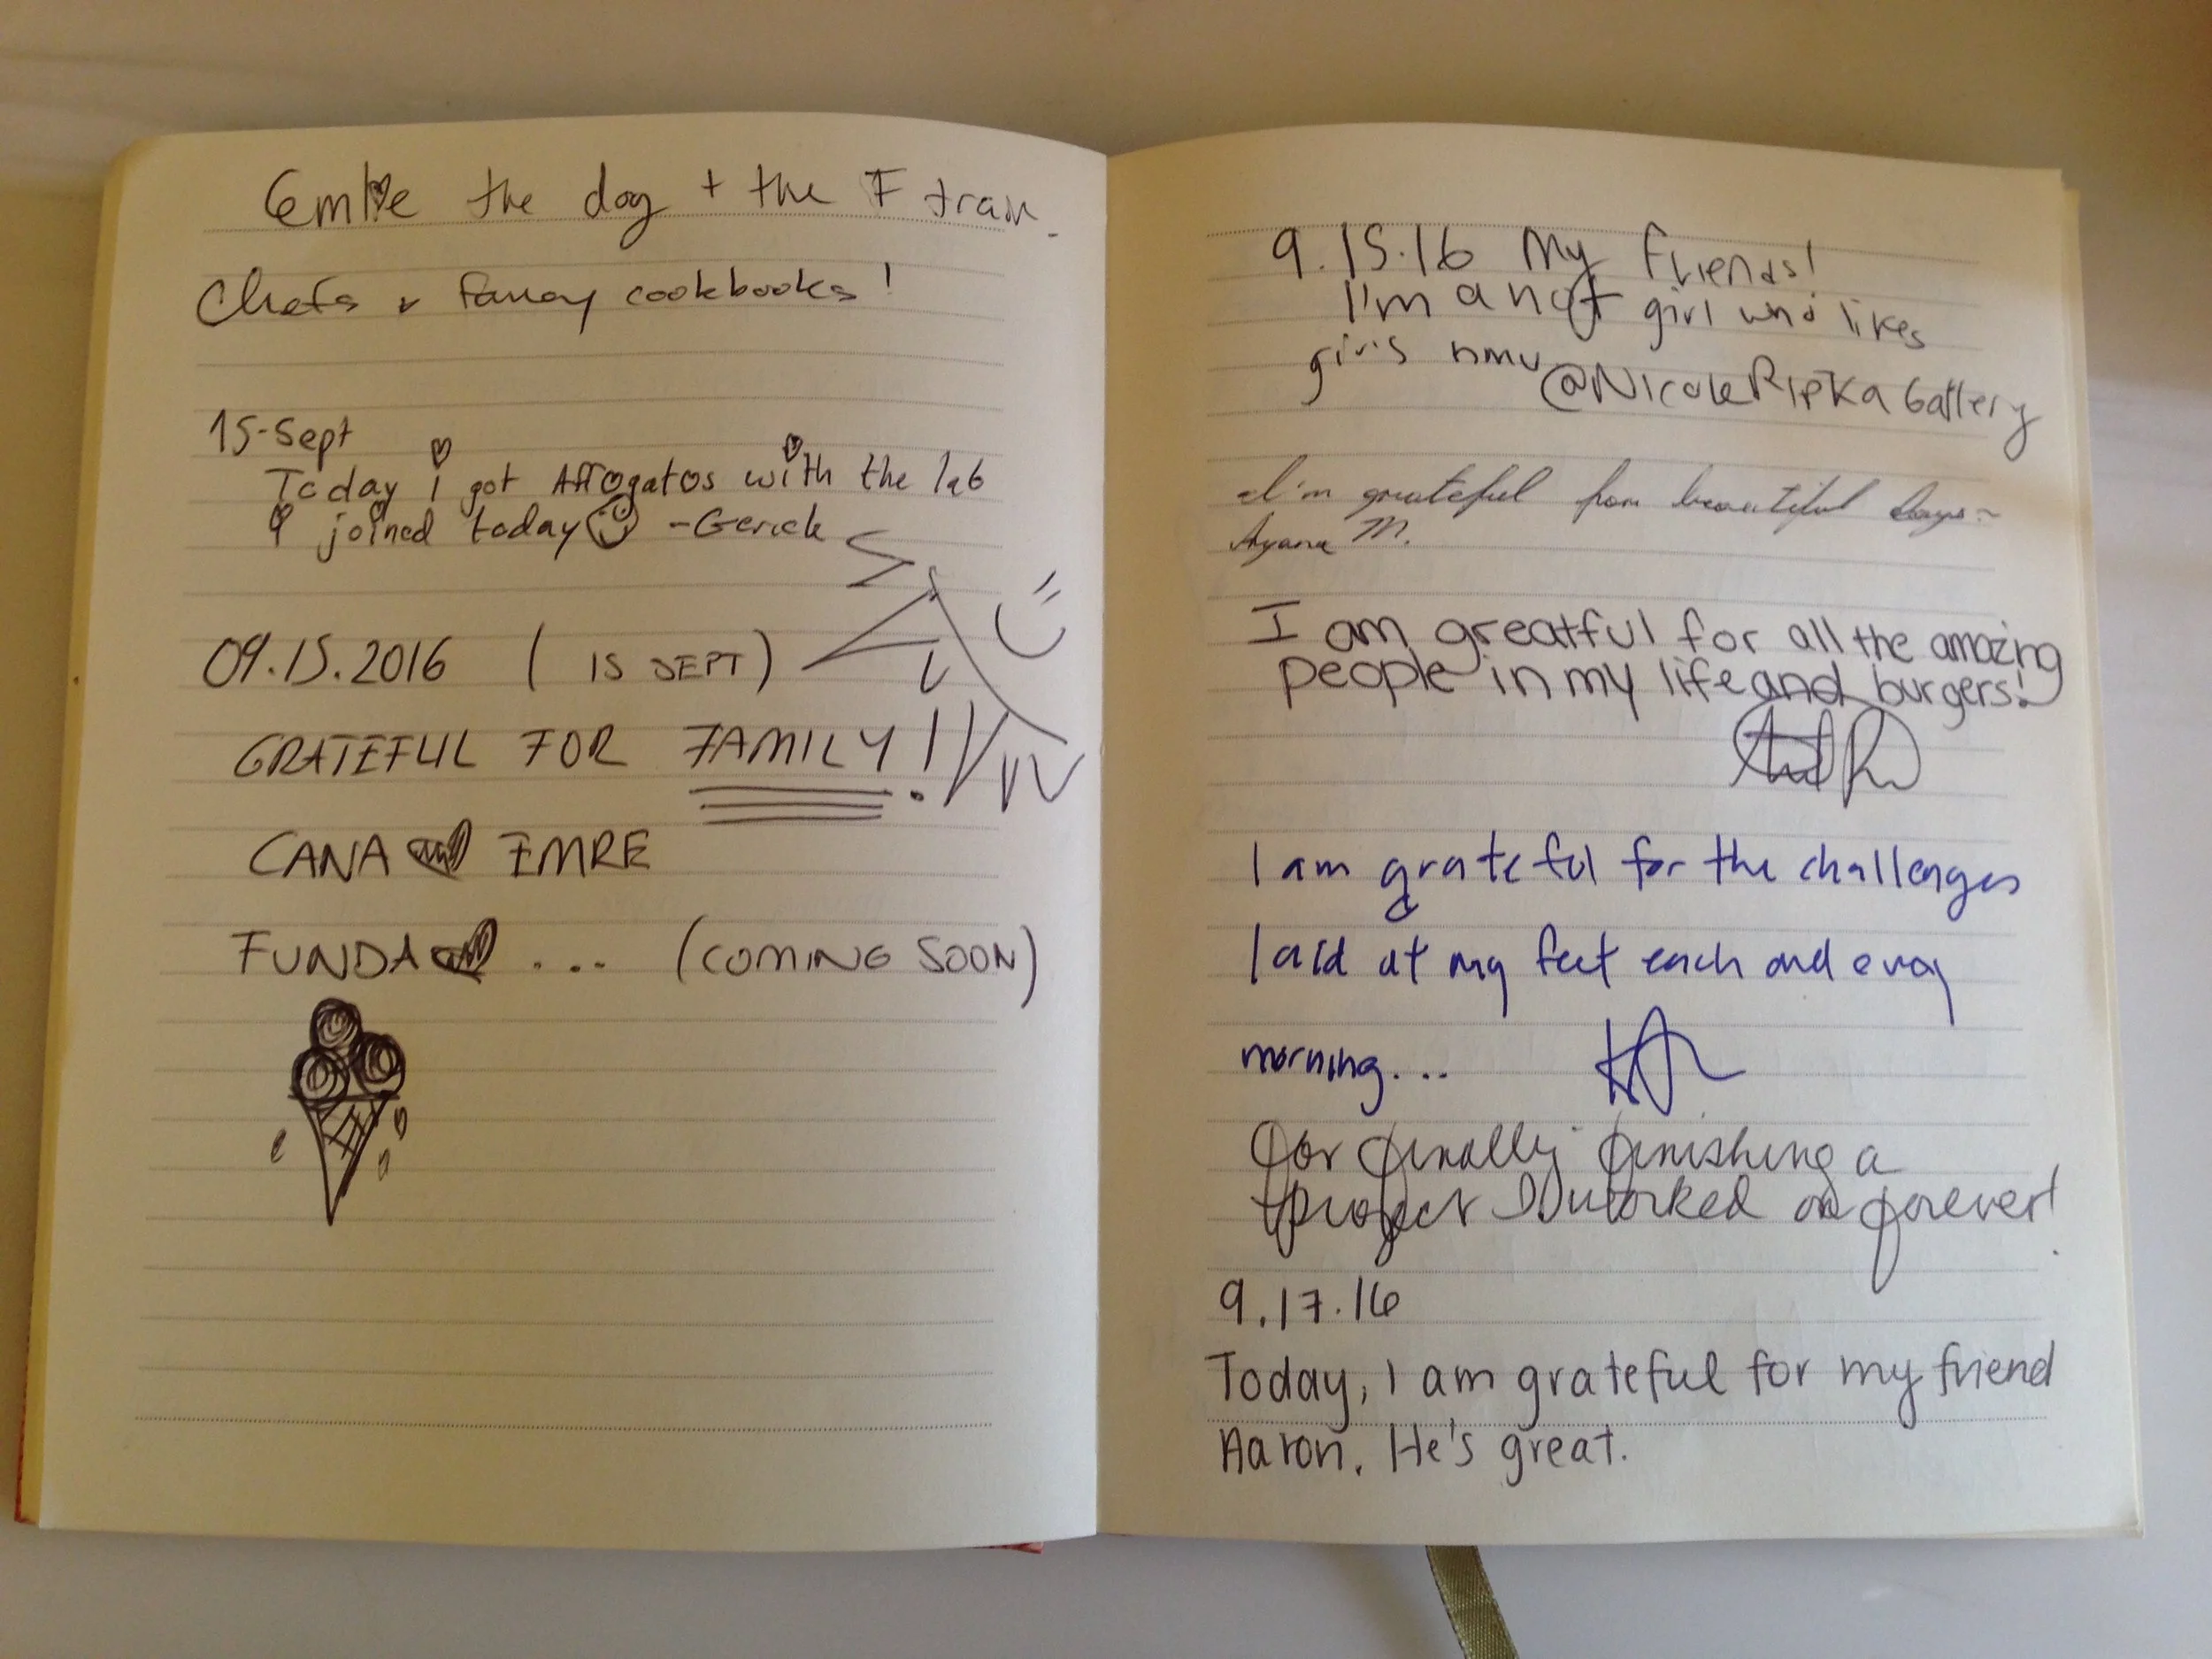 the dog + the F train.
Chefs & fancy cookbooks!
15-Sept
Today i got Affogatos with the lab
i joined today -Gerick
09.15.2016 ( 15 SEPT)
GRATEFUL FOR FAMILY!
CANA EMRE
FUNDA ... (COMING SOON)
9.15.16 My friends!
I'm a hot girl who likes
girls hmu @NicoleRipka Gallery
I'm grateful for beautiful days~
Ayana M.
I am greatful for all the amazing
people in my life and burgers!
I am grateful for the challenges
laid at my feet each and every
morning...
For finally finishing a
project I worked on forever!
9.17.16
Today, I am grateful for my friend
Aaron. He's great.